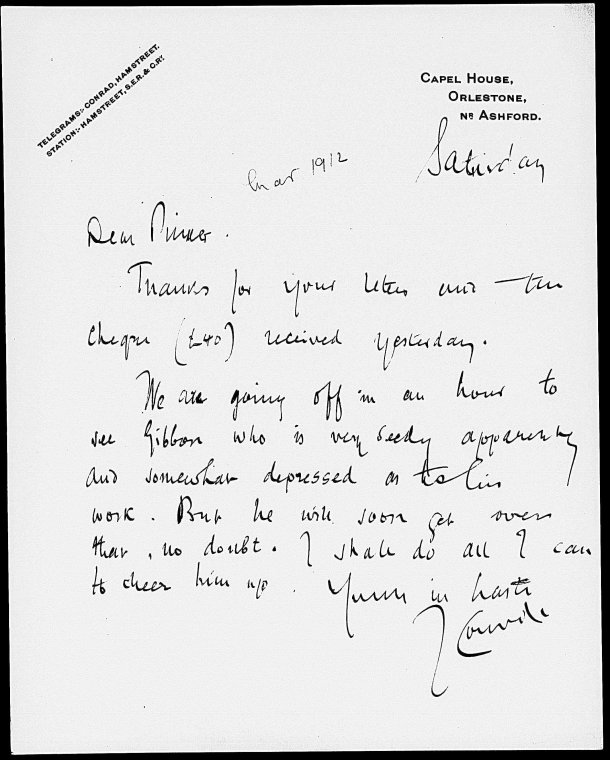 TELEGRAMS:- CONRAD, HAMSTREET.
STATION:- HAMSTREET, S.E.R. & C.RY.
CAPEL HOUSE,
ORLESTONE,
NR ASHFORD.
Mar 1912
Saturday
Dear Pinker.
Thanks for your letter and the
cheque (£40) received yesterday.
We are going off in an hour to
see Gibbon who is very seedy apparently
and somewhat depressed as to his
work. But he will soon get over
that, no doubt. I shall do all I can
to cheer him up. Yours in haste
J Conrad